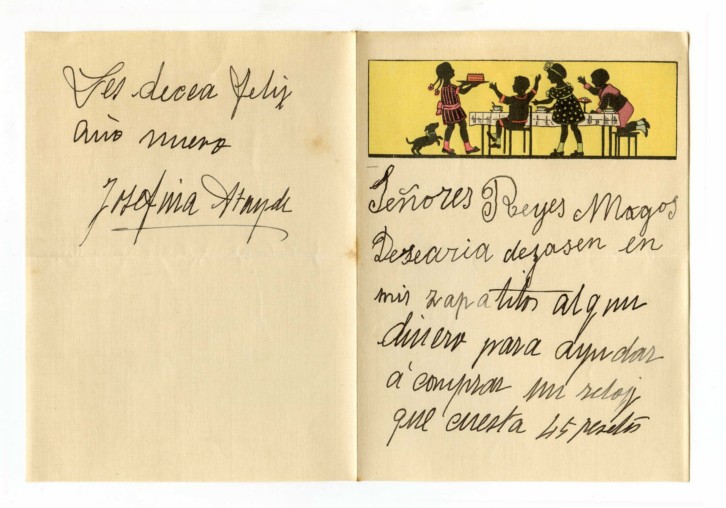 Señores Reyes Magos
Desearia dejasen en
mis zapatitos algun
dinero para ayudar
á comprar un reloj
que cuesta 45 pesetas
Les decea feliz
año nuevo
Josefina